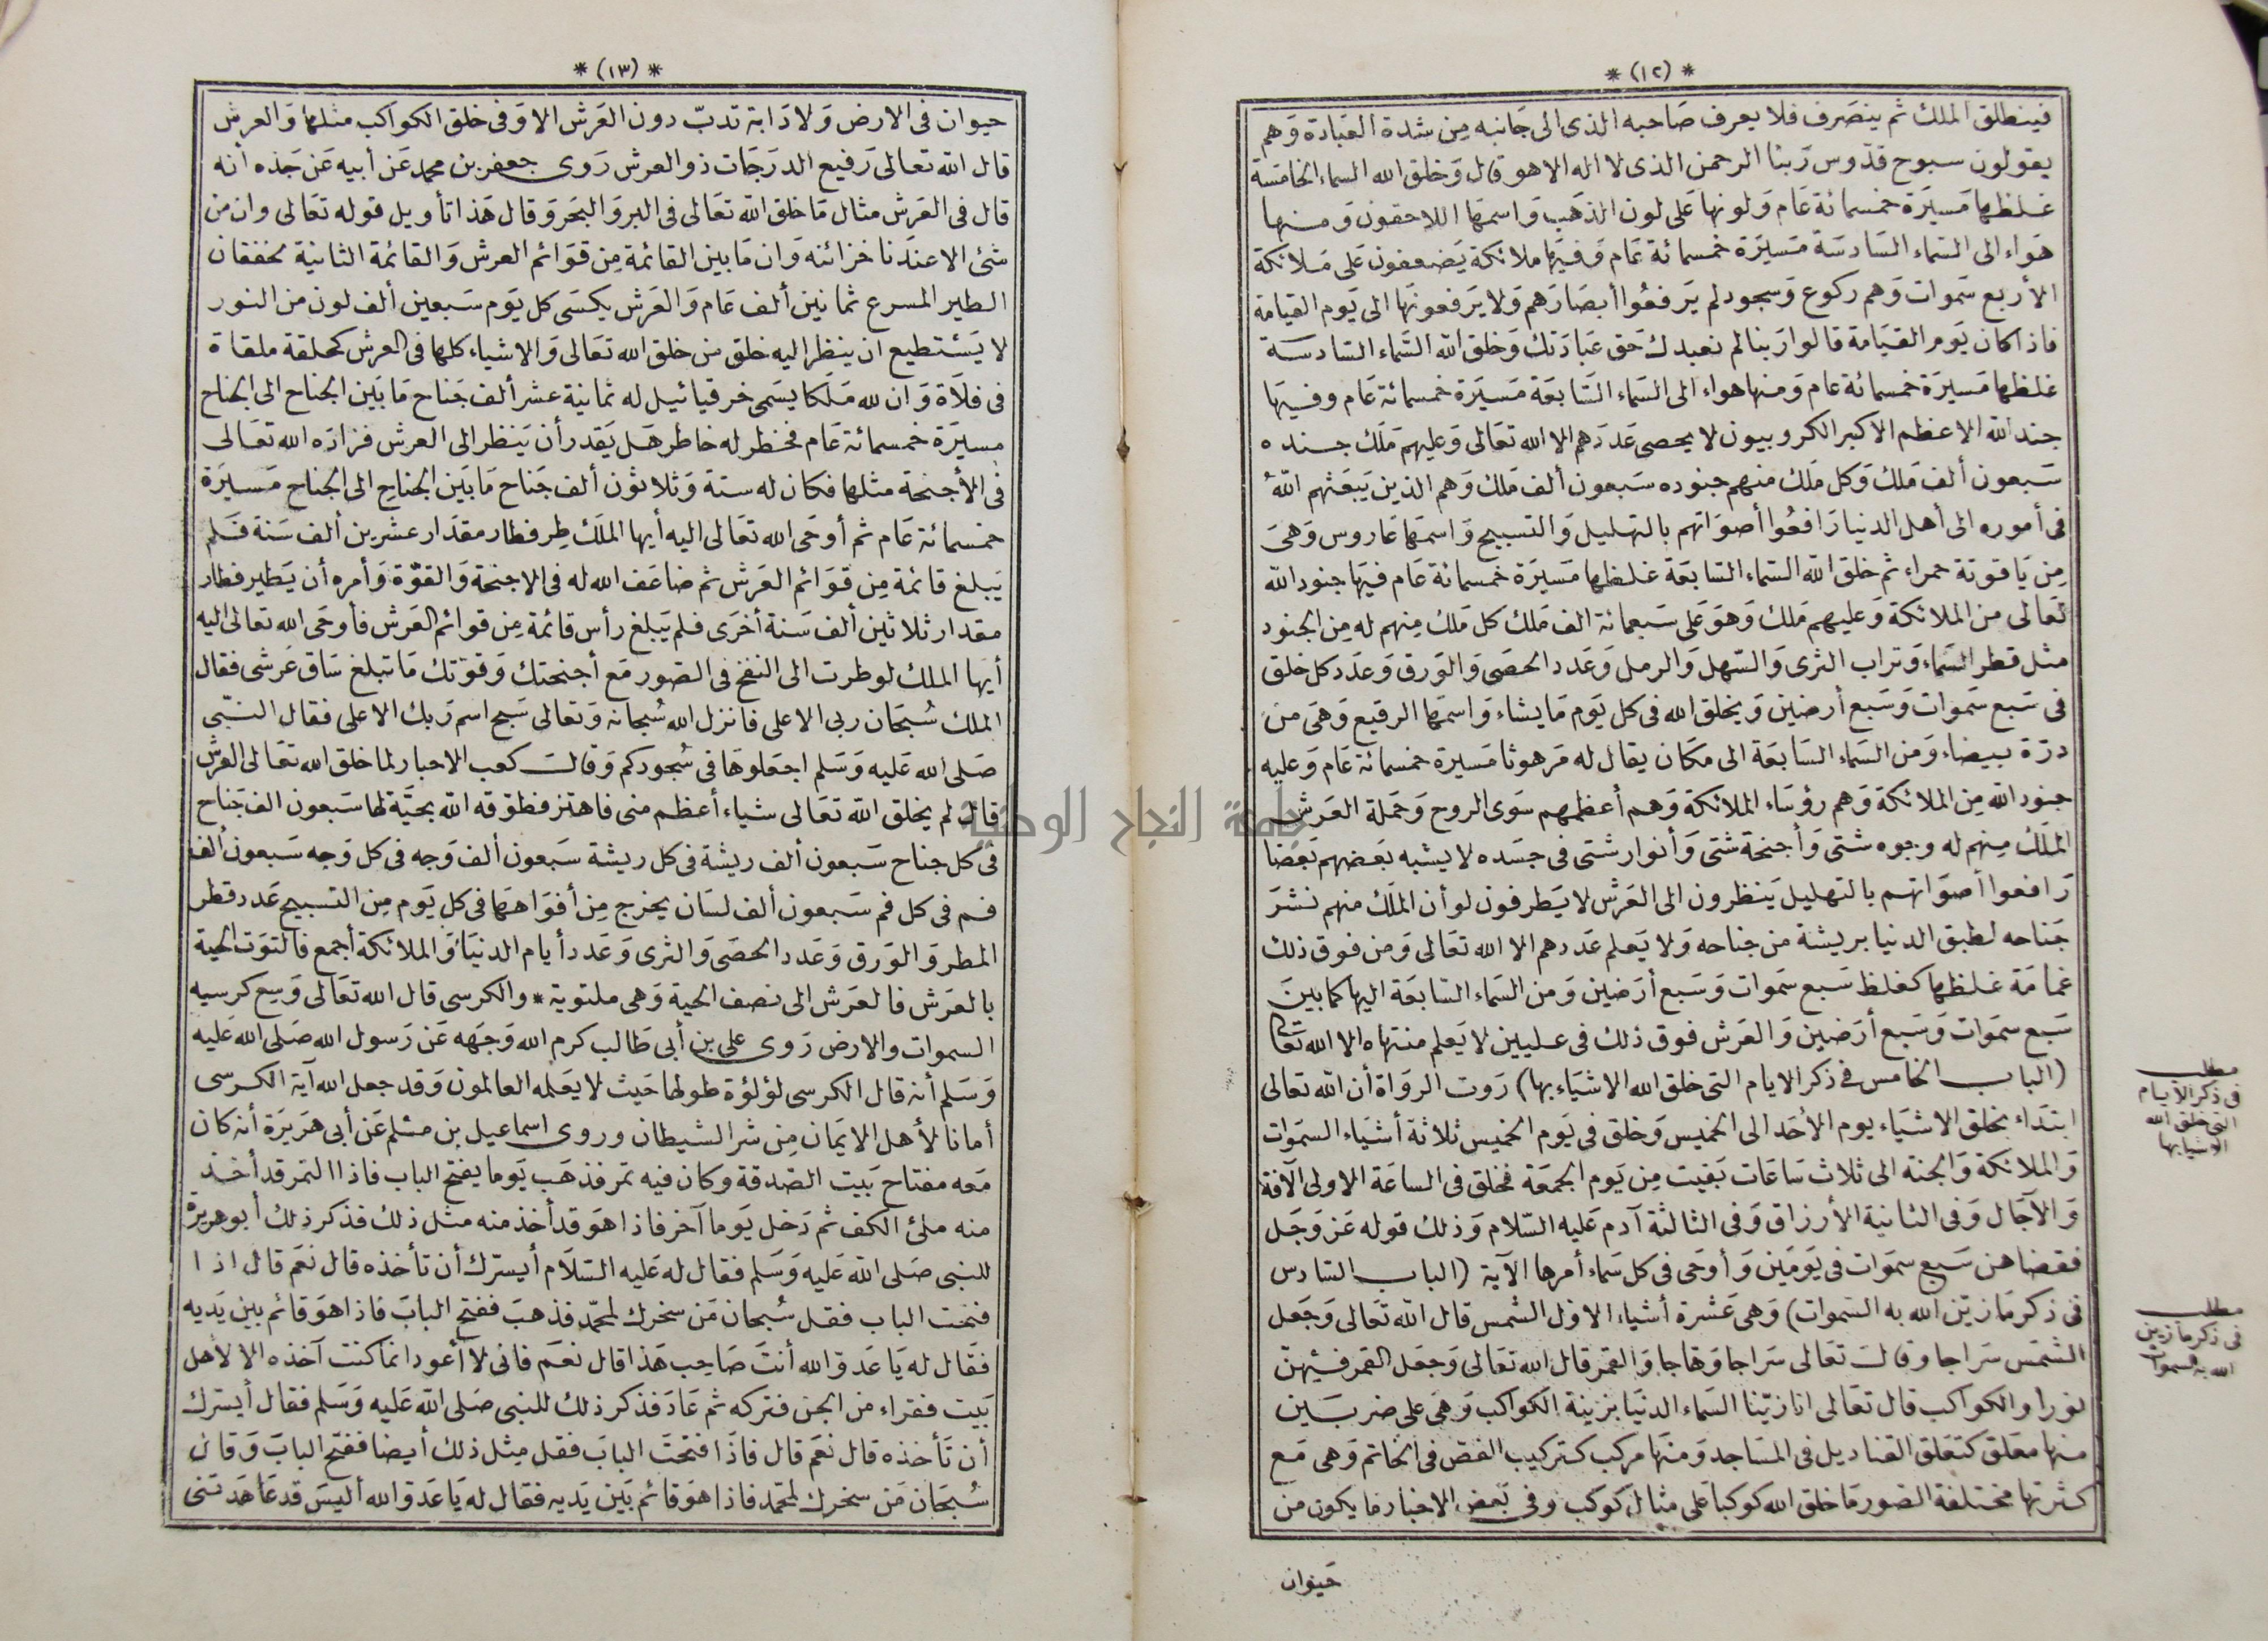 * (١٢) *
فينطلق الملك ثم ينصرف فلا يعرف صاحبه الذى الى جانبه من شدة العبادة وهم
يقولون سبوح قدوس ربنا الرحمن الذى لا اله الا هو قال وخلق الله السماء الخامسة
غلظها مسيرة خمسمائة عام ولونها على لون الذهب واسمها اللاحقون ومنها
هواء الى السماء السادسة مسيرة خمسمائة عام وفيها ملائكة يضعفون على ملائكة
الأربع سموات وهم ركوع وسجود لم يرفعوا أبصارهم ولا يرفعونها الى يوم القيامة
فاذا كان يوم القيامة قالوا ربنا لم نعبدك حق عبادتك وخلق الله السماء السادسة
غلظها مسيرة خمسمائة عام ومنها هواء الى السماء السابعة مسيرة خمسمائة عام وفيها
جند الله الاعظم الاكبر الكروبيون لا يحصى عددهم الا الله تعالى وعليهم ملك جنده
سبعون ألف ملك وكل ملك منهم جنوده سبعون ألف ملك وهم الذين يبعثهم الله
فى أموره الى أهل الدنيا رافعوا أصواتهم بالتهليل والتسبيح واسمها عاروس وهى
من ياقوتة حمراء ثم خلق الله السماء السابعة غلظها مسيرة خمسمائة عام فيها جنود الله
تعالى من الملائكة وعليهم ملك وهو على سبعمائة الف ملك كل ملك منهم له من الجنود
مثل قطر السماء وتراب الثرى والسهل والرمل وعدد الحصى والورق وعدد كل خلق
فى سبع سموات وسبع أرضين ويخلق الله فى كل يوم ما يشاء واسمها الرقيع وهى من
درة بيضاء ومن السماء السابعة الى مكان يقال له مرهوثا مسيرة خمسمائة عام وعليه
جنود الله من الملائكة وهم رؤساء الملائكة وهم أعظمهم سوى الروح وحملة العرش
الملك منهم له وجوه شتى وأجنحة شتى وأنوار شتى فى جسده لا يشبه بعضهم بعضا
رافعوا أصواتهم بالتهليل ينظرون الى العرش لا يطرفون لو أن الملك منهم نشر
جناحه لطبق الدنيا بريشة من جناحه ولا يعلم عددهم الا الله تعالى ومن فوق ذلك
غمامة غلظها كغلظ سبع سموات وسبع أرضين ومن السماء السابعة اليها كما بين
سبع سموات وسبع أرضين والعرش فوق ذلك فى عليين لا يعلم منتهاه الا الله تعالى
(الباب الخامس فى ذكر الايام التى خلق الله الاشياء بها) روت الرواة أن الله تعالى
ابتداء بخلق الاشياء يوم الأحد الى الخميس وخلق فى يوم الخميس ثلاثة أشياء السموات
والملائكة والجنة الى ثلاث ساعات بقيت من يوم الجمعة فخلق فى الساعة الاولى الآفة
والآجال وفى الثانية الأرزاق وفى الثالثة آدم عليه السلام وذلك قوله عز وجل
فقضاهن سبع سموات فى يومين وأوحى فى كل سماء أمرها الآية (الباب السادس
فى ذكر ما زين الله به السموات) وهى عشرة أشياء الاول الشمس قال الله تعالى وجعل
الشمس سراجا وقال تعالى سراجا وهاجا والقمر قال الله تعالى وجعل القمر فيهن
نورا والكواكب قال تعالى انا زينا السماء الدنيا بزينة الكواكب وهى على ضربين
منها معلق كتعلق القناديل فى المساجد ومنها مركب كتركيب الفص فى الخاتم وهى مع
كثرتها مختلفة الصور ما خلق الله كوكبا على مثال كوكب وفى بعض الاخبار ما يكون من
حيوان
مطلب
فى ذكر الايام
التى خلق الله
الاشيا بها
مطلب
فى ذكر ما زين
الله به السموات
* (١٣) *
حيوان فى الارض ولا دابة تدب دون العرش الا وفى خلق الكواكب مثلها والعرش
قال الله تعالى رفيع الدرجات ذو العرش روى جعفر بن محمد عن أبيه عن جده أنه
قال فى العرش مثال ما خلق الله تعالى فى البر والبحر وقال هذا تأويل قوله تعالى وان من
شئ الا عندنا خزائنه وان ما بين القائمة من قوائم العرش والقائمة الثانية خفقان
الطير المسرع ثمانين ألف عام والعرش يكسى كل يوم سبعين ألف لون من النور
لا يستطيع ان ينظر اليه خلق من خلق الله تعالى والاشياء كلها فى العرش كحلقة ملقاة
فى فلاة وان لله ملكا يسمى خرقيائيل له ثمانية عشر ألف جناح ما بين الجناح الى الجناح
مسيرة خمسمائة عام فخطر له خاطر هل يقدر أن ينظر الى العرش فزاده الله تعالى
فى الأجنحة مثلها فكان له ستة وثلاثون ألف جناح ما بين الجناح الى الجناح مسيرة
خمسمائة عام ثم أوحى الله تعالى اليه أيها الملك طر فطار مقدار عشرين ألف سنة فلم
يبلغ قائمة من قوائم العرش ثم ضاعف الله له فى الاجنحة والقوة وأمره أن يطير فطار
مقدار ثلاثين ألف سنة أخرى فلم يبلغ رأس قائمة من قوائم العرش فأوحى الله تعالى اليه
أيها الملك لو طرت الى النفخ فى الصور مع أجنحتك وقوتك ما تبلغ ساق عرشى فقال
الملك سبحان ربى الاعلى فانزل الله سبحانه وتعالى سبح اسم ربك الاعلى فقال النبى
صلى الله عليه وسلم اجعلوها فى سجودكم وقال كعب الاحبار لما خلق الله تعالى العرش
قال لم يخلق الله تعالى شياء أعظم منى فاهتز فطوقه الله بحية لها سبعون الف جناح
فى كل جناح سبعون ألف ريشة فى كل ريشة سبعون ألف وجه فى كل وجه سبعون ألف
فم فى كل فم سبعون ألف لسان يخرج من أفواهها فى كل يوم من التسبيح عدد قطر
المطر والورق وعدد الحصى والثرى وعدد أيام الدنيا والملائكة أجمع فالتوت الحية
بالعرش فالعرش الى نصف الحية وهى ملتوية * والكرسى قال الله تعالى وسع كرسيه
السموات والارض روى على بن أبى طالب كرم الله وجهه عن رسول الله صلى الله عليه
وسلم أنه قال الكرسى لؤلؤة طولها حيث لا يعلمه العالمون وقد جعل الله آية الكرسى
أمانا لأهل الايمان من شر الشيطان وروى اسماعيل بن مسلم عن أبى هريرة أنه كان
معه مفتاح بيت الصدقة وكان فيه تمر فذهب يوما يفتح الباب فاذا التمر قد أخذ
منه ملئ الكف ثم دخل يوما آخر فاذا هو قد أخذ منه مثل ذلك فذكر ذلك أبو هريرة
للنبى صلى الله عليه وسلم فقال له عليه السلام أيسرك أن تأخذه قال نعم قال اذا
فتحت الباب فقل سبحان من سخرك لمحمد فذهب ففتح الباب فاذا هو قائم بين يديه
فقال له يا عدو الله أنت صاحب هذا قال نعم فانى لا أعود انما كنت آخذه الا لأهل
بيت فقراء من الجن فتركه ثم عاد فذكر ذلك للنبى صلى الله عليه وسلم فقال أيسرك
أن تأخذه قال نعم قال فاذا فتحت الباب فقل مثل ذلك أيضا ففتح الباب وقال
سبحان من سخرك لمحمد فاذا هو قائم بين يديه فقال له يا عدو الله أليس قد عاهدتنى
جامعة النجاح الوطنية